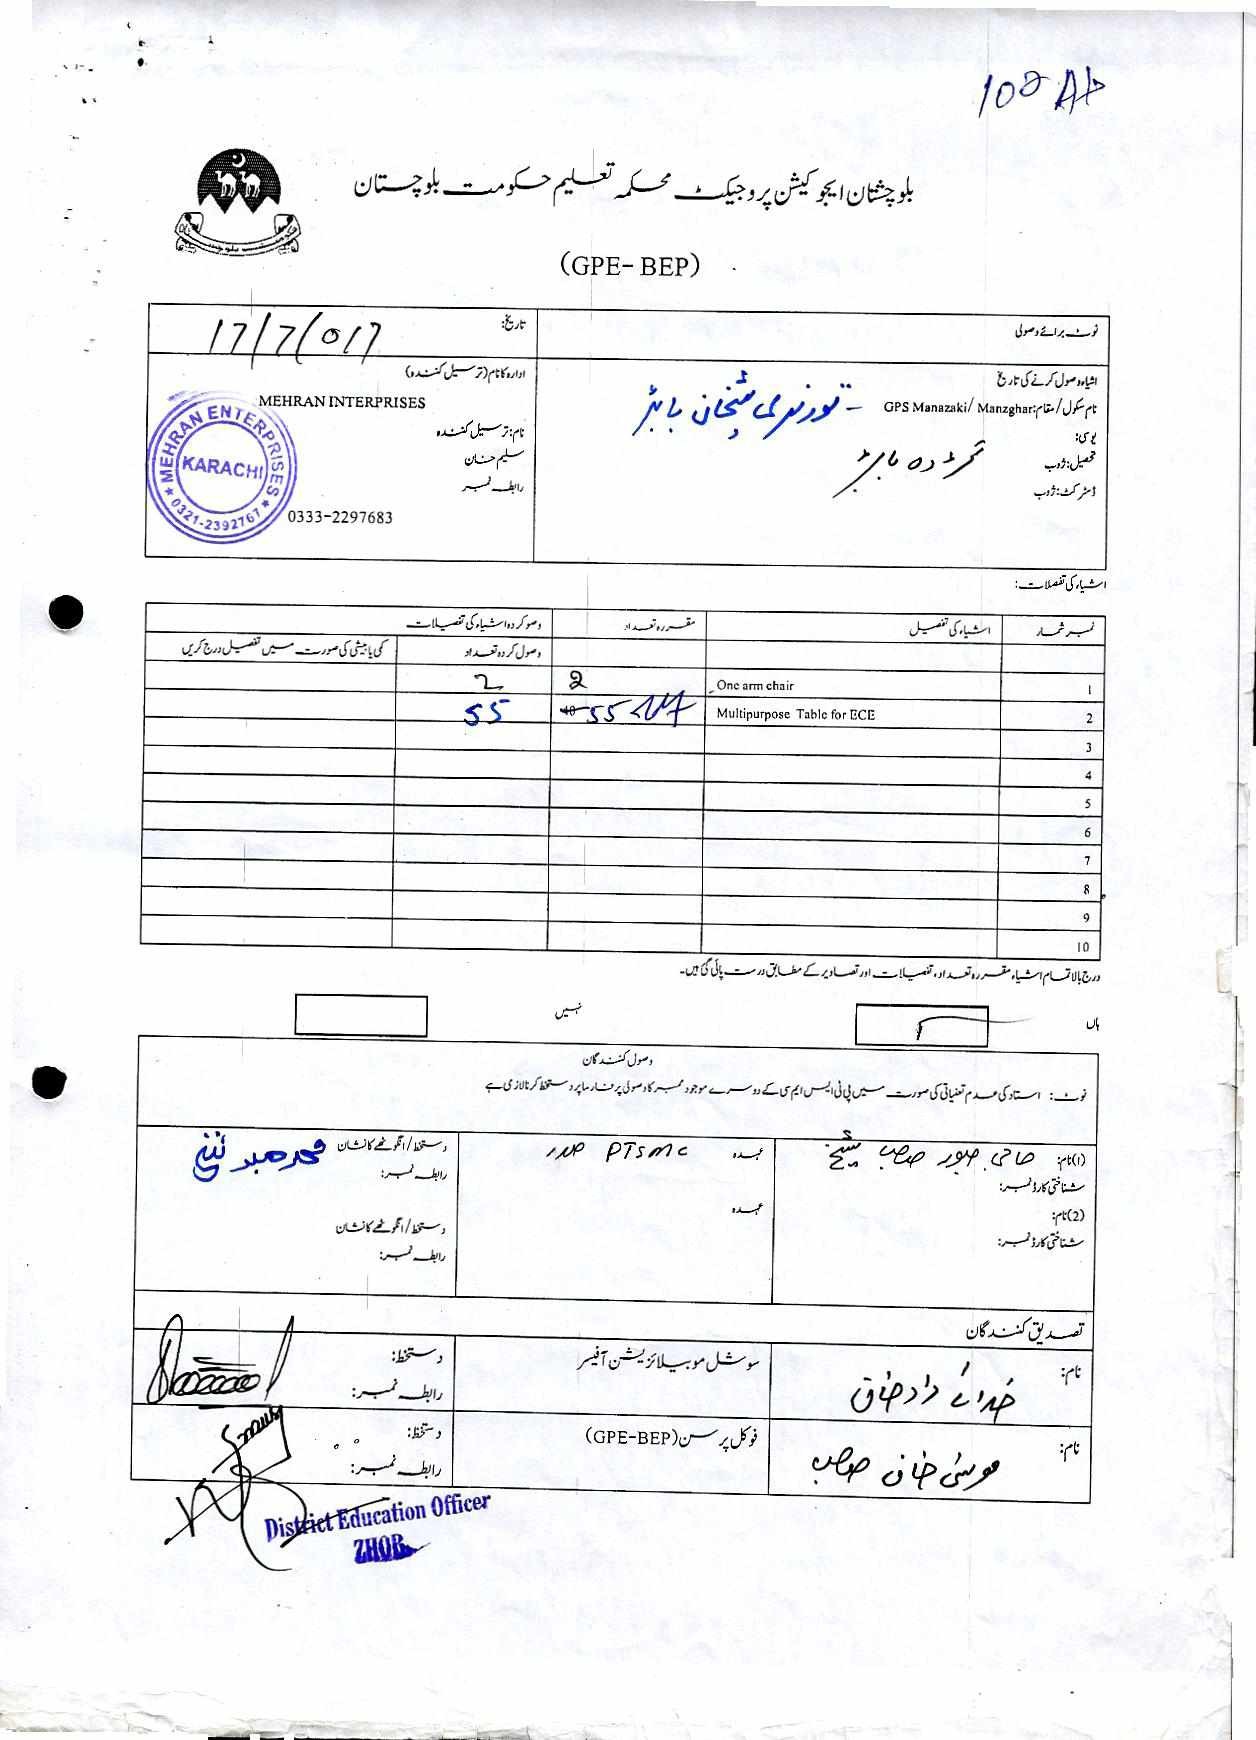 بلوچستان ایجوکیشن پروجیکٹ محکمہ تعلیم حکومت بلوچستان
(GPE- BEP)
نوٹ برائے وصولی
تاریخ: 17/7/017
اشیاء وصول کرنے کی تاریخ
نام سکول/مقام: GPS Manazaki/ Manzghar
یو سی:
تحصیل: ژوب
ڈسٹرکٹ: ژوب
ادارہ کا نام (ترسیل کنندہ)
MEHRAN INTERPRISES
نام: ترسیل کنندہ
سلیم خان
رابطہ نمبر
0333-2297683
MEHRAN ENTERPRISES
KARACHI
0321-2392767
اشیاء کی تفصیلات:
نمبر شمار اشیاء کی تفصیل مقررہ تعداد وصول کردہ اشیاء کی تفصیلات
وصول کردہ تعداد کمی یا بیشی کی صورت میں تفصیل درج کریں
1 One arm chair 2 2
2 Multipurpose Table for ECE 40 55 55
3
4
5
6
7
8
9
10
درج بالا تمام اشیاء مقررہ تعداد، تفصیلات اور تصاویر کے مطابق درست پائی گئی ہیں۔
ہاں نہیں
وصول کنندگان
نوٹ: استاد کی عدم تعیناتی کی صورت میں پی ٹی ایس ایم سی کے دوسرے موجود ممبر کا وصولی پر فارما پر دستخط کرنا لازمی ہے
(1) نام: حاجی صاحب شیخ عہدہ صدر PTSMC دستخط/انگوٹھے کا نشان
شناختی کارڈ نمبر: رابطہ نمبر:
(2) نام: عہدہ دستخط/انگوٹھے کا نشان
شناختی کارڈ نمبر: رابطہ نمبر:
تصدیق کنندگان
نام: خدائے داد خان سوشل موبیلائزیشن آفیسر دستخط:
رابطہ نمبر:
نام: موسیٰ خان صاحب فوکل پرسن (GPE-BEP) دستخط:
رابطہ نمبر:
District Education Officer
ZHOB